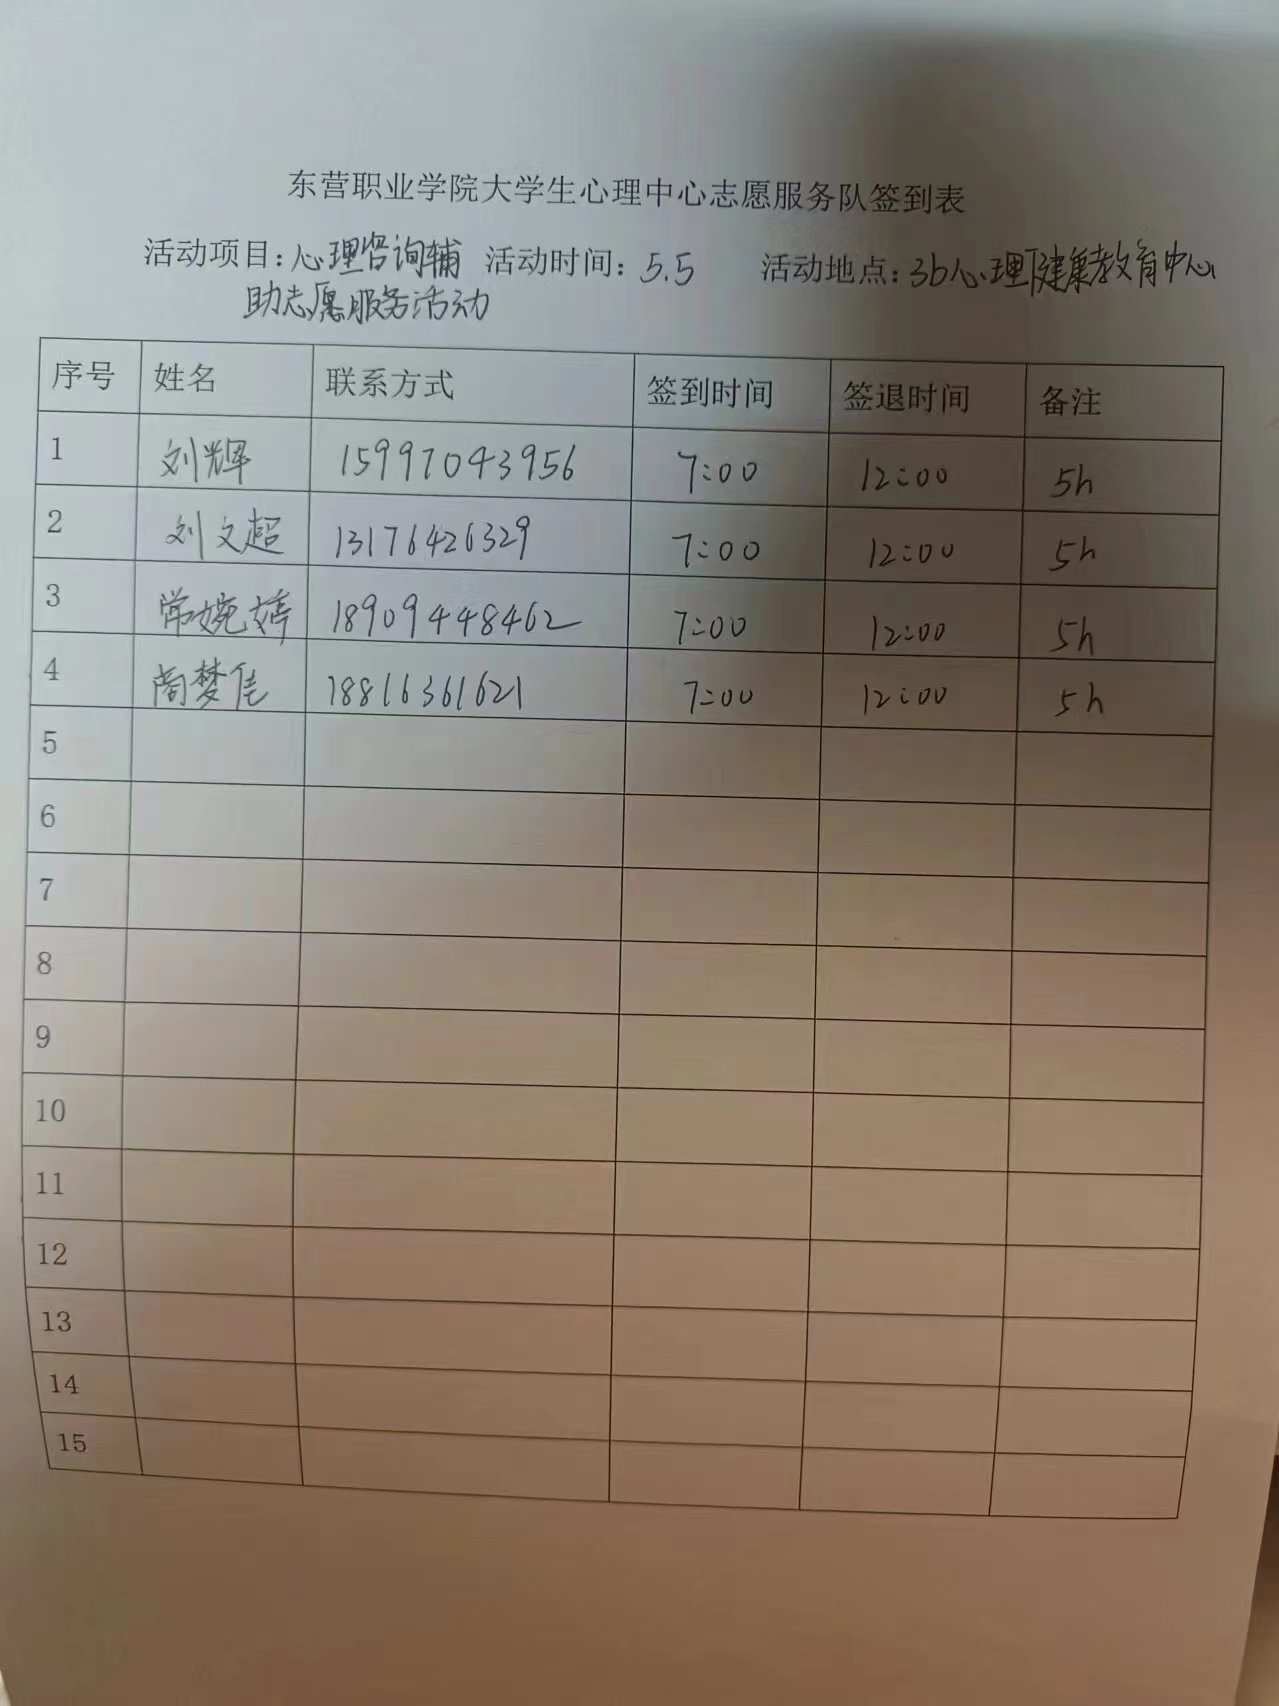 东营职业学院大学生心理中心志愿服务队签到表
活动项目:心理咨询辅 活动时间:5.5 活动地点:3b心理健康教育中心
助志愿服务活动
序号 姓名 联系方式 签到时间 签退时间 备注
1 刘辉 15997043956 7:00 12:00 5h
2 刘文超 13176426329 7:00 12:00 5h
3 常婉婷 18909448462 7:00 12:00 5h
4 商梦佳 18816361621 7:00 12:00 5h
5
6
7
8
9
10
11
12
13
14
15